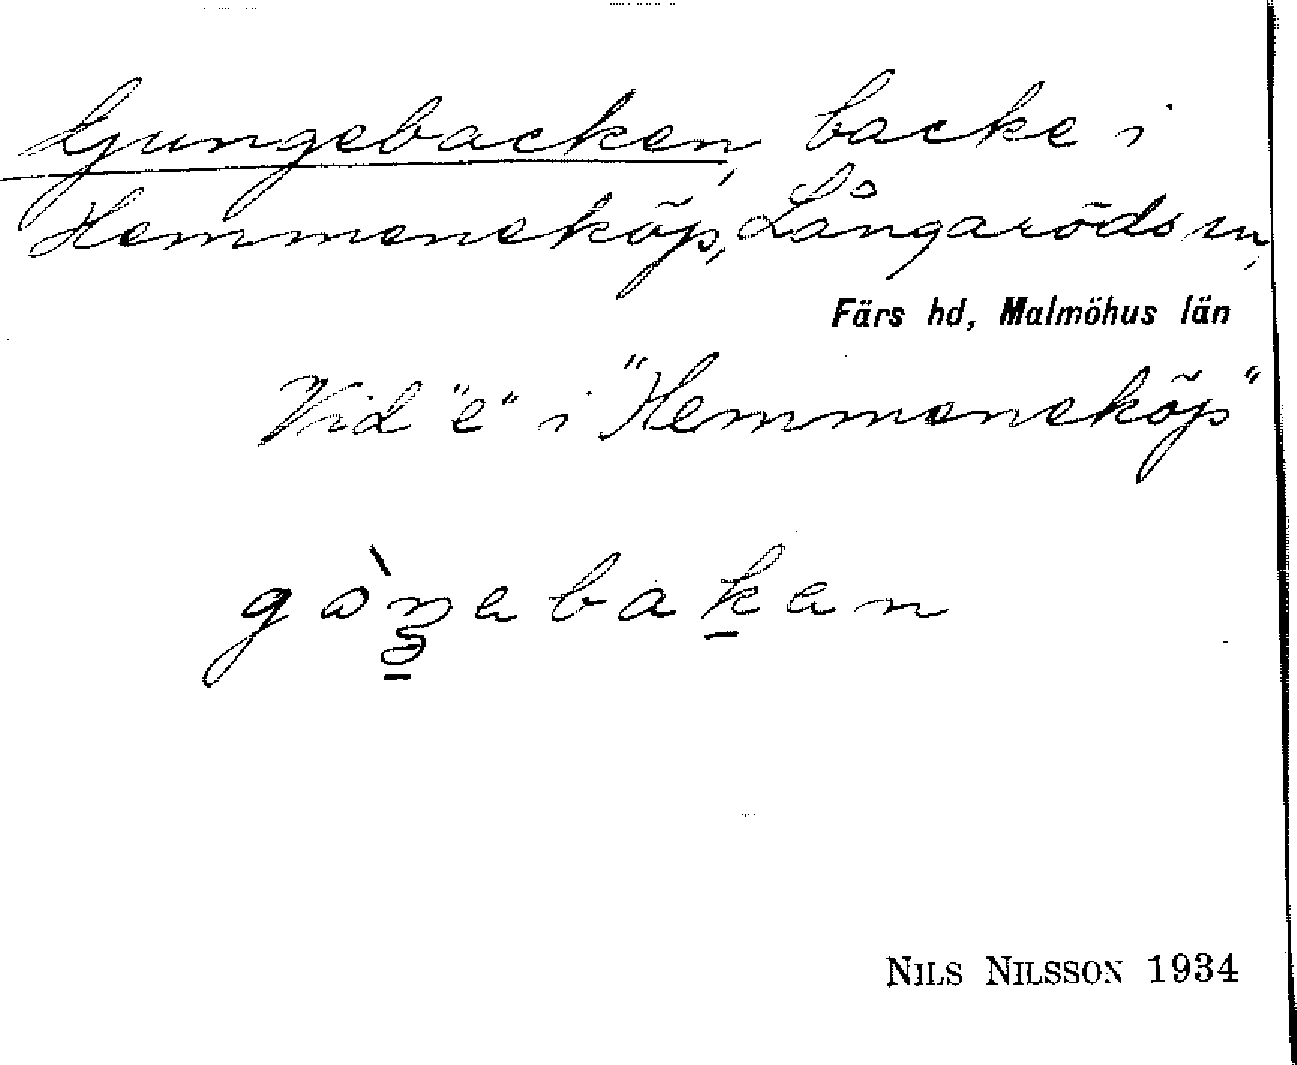 Gungebacken, backe i
Hemmeneköp, Långaröds sn,
Färs hd, Malmöhus län
Vid "e" i "Hemmeneköp"
NILS NILSSON 1934